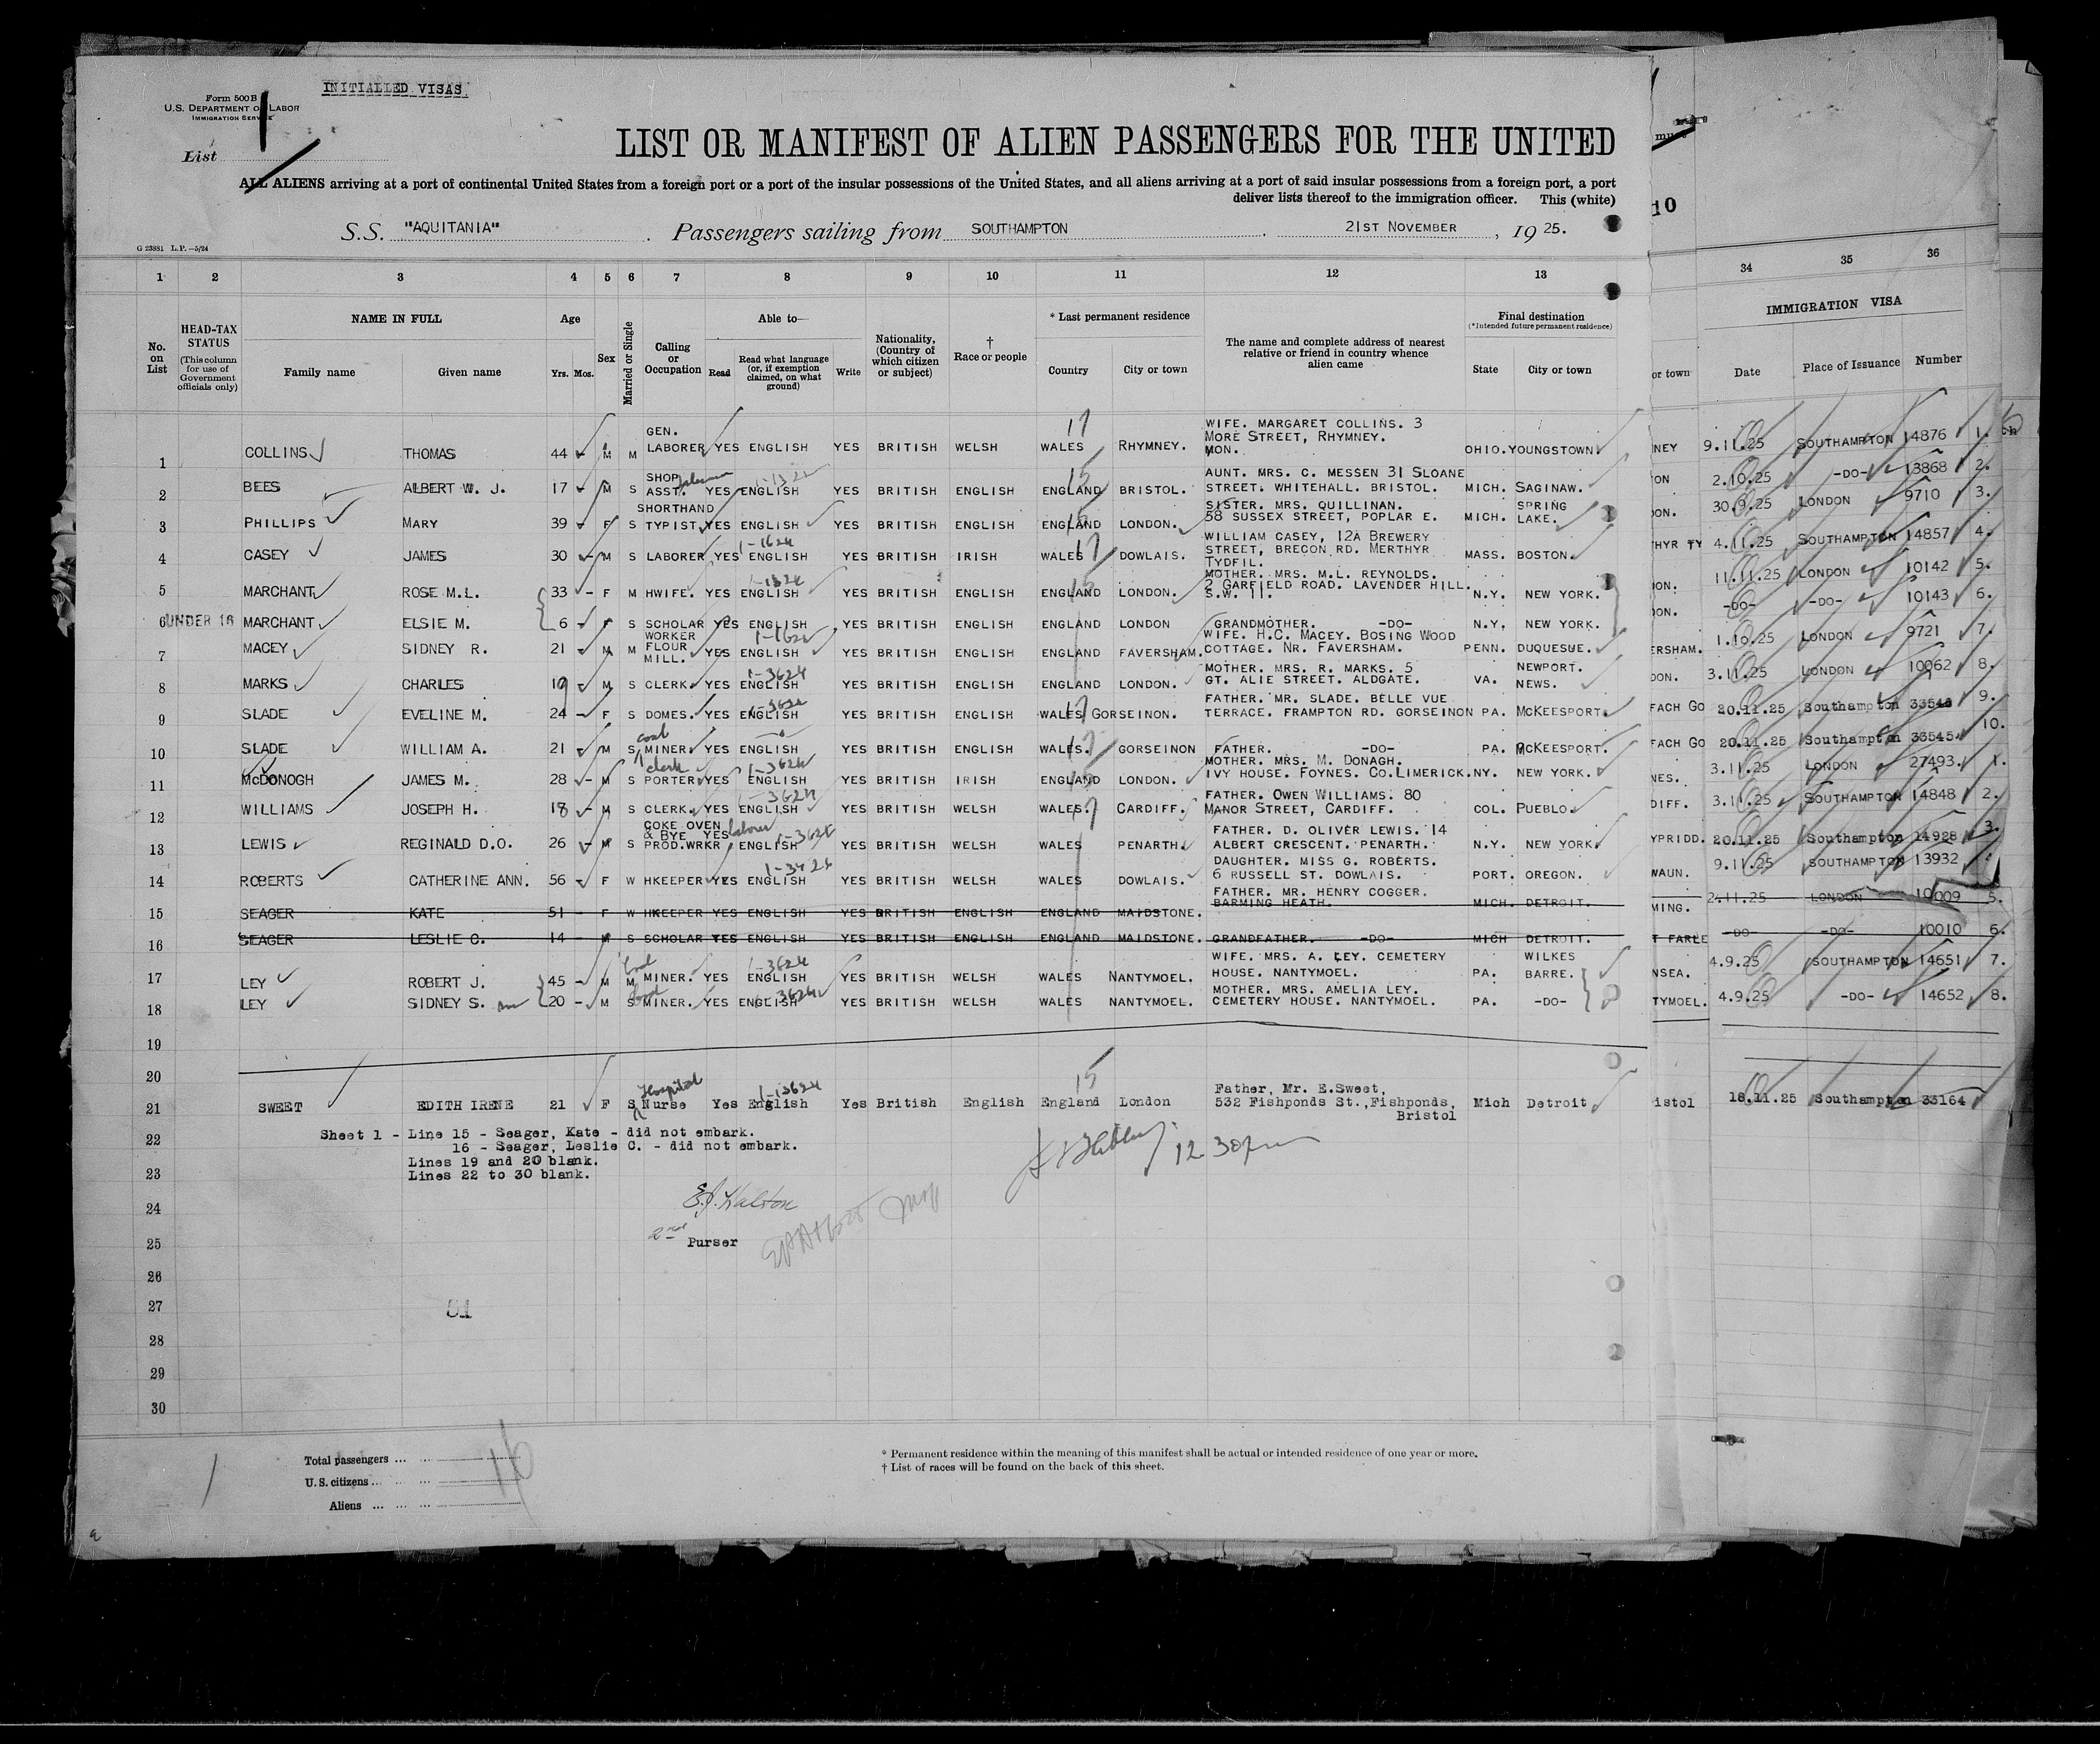 INITIALLED VISAS.
Form 500 B
U.S. DEPARTMENT OF LABOR
IMMIGRATION SERVICE
List
1
LIST OR MANIFEST OF ALIEN PASSENGERS FOR THE UNITED
ALL ALIENS arriving at a port of continental United States from a foreign port or a port of the insular possessions of the United States, and all aliens arriving at a port of said insular possessions from a foreign port, a port
deliver lists thereof to the immigration officer. This (white)
10
S.S. "AQUITANIA" . Passengers sailing from SOUTHAMPTON . 21ST NOVEMBER , 19 25.
G 23881 L.P.—5/24
1 2 3 4 5 6 7 8 9 10 11 12 13 34 35 36
No. on List
HEAD-TAX STATUS (This column for use of Government officials only)
NAME IN FULL Family name Given name
Age Yrs. Mos.
Sex
Married or Single
Calling or Occupation
Able to— Read Read what language (or, if exemption claimed, on what ground) Write
Nationality, (Country of which citizen or subject)
† Race or people
* Last permanent residence Country City or town
The name and complete address of nearest relative or friend in country whence alien came
Final destination (*Intended future permanent residence) State City or town
or town
IMMIGRATION VISA Date Place of Issuance Number
1 COLLINS THOMAS 44 - M M GEN. LABORER YES ENGLISH YES BRITISH WELSH WALES 17 RHYMNEY. WIFE. MARGARET COLLINS. 3 MORE STREET, RHYMNEY. MON. OHIO. YOUNGSTOWN NEY 9.11.25 SOUTHAMPTON 14876 1.
2 BEES ALBERT W. J. 17 - M S SHOP ASST. YES ENGLISH YES BRITISH ENGLISH ENGLAND 15 BRISTOL. AUNT. MRS. C. MESSEN 31 SLOANE STREET. WHITEHALL. BRISTOL. MICH. SAGINAW. ON 2.10.25 -DO- 13868 2.
3 PHILLIPS MARY 39 - F S SHORTHAND TYPIST YES ENGLISH YES BRITISH ENGLISH ENGLAND 15 LONDON. SISTER. MRS. QUILLINAN. 58 SUSSEX STREET, POPLAR E. MICH. SPRING LAKE. ON. 30.9.25 LONDON 9710 3.
4 CASEY JAMES 30 - M S LABORER YES 1-1624 ENGLISH YES BRITISH IRISH WALES 17 DOWLAIS. WILLIAM CASEY, 12A BREWERY STREET, BRECON RD. MERTHYR TYDFIL. MASS. BOSTON. HYR TY 4.11.25 SOUTHAMPTON 14857 4.
5 MARCHANT ROSE M.L. 33 - F M HWIFE. YES 1-1324 ENGLISH YES BRITISH ENGLISH ENGLAND 15 LONDON. MOTHER. MRS. M.L. REYNOLDS. 2 GARFIELD ROAD. LAVENDER HILL. S.W. 11. N.Y. NEW YORK. ON. 11.11.25 LONDON 10142 5.
6 UNDER 16 MARCHANT ELSIE M. 6 - F S SCHOLAR YES ENGLISH YES BRITISH ENGLISH ENGLAND LONDON GRANDMOTHER. -DO- N.Y. NEW YORK. ON. -DO- -DO- 10143 6.
7 MACEY SIDNEY R. 21 - M M WORKER FLOUR MILL. YES 1-1624 ENGLISH YES BRITISH ENGLISH ENGLAND FAVERSHAM. WIFE. H.C. MACEY. BOSING WOOD COTTAGE. NR. FAVERSHAM. PENN. DUQUESUE. ERSHAM. 1.10.25 LONDON 9721 7.
8 MARKS CHARLES 19 - M S CLERK. YES 1-3624 ENGLISH YES BRITISH ENGLISH ENGLAND LONDON. MOTHER. MRS. R. MARKS. 5 GT. ALIE STREET. ALDGATE. VA. NEWPORT. NEWS. DON. 3.11.25 LONDON 10062 8.
9 SLADE EVELINE M. 24 - F S DOMES. YES 1-3624 ENGLISH YES BRITISH ENGLISH WALES 17 GORSEINON. FATHER. MR. SLADE. BELLE VUE TERRACE. FRAMPTON RD. GORSEINON PA. MCKEESPORT. FACH GO 20.11.25 Southampton 33543 9.
10 SLADE WILLIAM A. 21 - M S coal MINER. YES ENGLISH YES BRITISH ENGLISH WALES. 17 GORSEINON FATHER. -DO- PA. MCKEESPORT. FACH GO 20.11.25 Southampton 33545 10.
11 MCDONOGH JAMES M. 28 - M S clerk PORTER YES 1-3624 ENGLISH YES BRITISH IRISH ENGLAND 15 LONDON. MOTHER. MRS. M. DONAGH. IVY HOUSE. FOYNES. CO.LIMERICK. NY. NEW YORK. NES. 3.11.25 LONDON 27493. 1.
12 WILLIAMS JOSEPH H. 18 - M S CLERK. YES 1-3624 ENGLISH YES BRITISH WELSH WALES. 17 CARDIFF. FATHER. OWEN WILLIAMS. 80 MANOR STREET, CARDIFF. COL. PUEBLO. DIFF. 3.11.25 SOUTHAMPTON 14848 2.
13 LEWIS REGINALD D.O. 26 - M S COKE OVEN & BYE PROD.WRKR labourer YES 1-3624 ENGLISH YES BRITISH WELSH WALES PENARTH. FATHER. D. OLIVER LEWIS. 14 ALBERT CRESCENT. PENARTH. N.Y. NEW YORK. YPRIDD. 20.11.25 Southampton 14928 3.
14 ROBERTS CATHERINE ANN. 56 - F W HKEEPER YES 1-3424 ENGLISH YES BRITISH WELSH WALES DOWLAIS. DAUGHTER. MISS G. ROBERTS. 6 RUSSELL ST. DOWLAIS. PORT. OREGON. WAUN. 9.11.25 SOUTHAMPTON 13932
15 SEAGER KATE 51 - F W HKEEPER YES ENGLISH YES BRITISH ENGLISH ENGLAND MAIDSTONE. FATHER. MR. HENRY COGGER. BARMING HEATH. MICH. DETROIT. MING. 2.11.25 LONDON 10009 5.
16 SEAGER LESLIE C. 14 - M S SCHOLAR YES ENGLISH YES BRITISH ENGLISH ENGLAND MAIDSTONE. GRANDFATHER. -DO- MICH DETROIT. T FARLE -DO- -DO- 10010 6.
17 LEY ROBERT J. 45 - M M coal MINER. YES 1-3624 ENGLISH YES BRITISH WELSH WALES NANTYMOEL. WIFE. MRS. A. LEY. CEMETERY HOUSE. NANTYMOEL. PA. WILKES BARRE. NSEA. 4.9.25 SOUTHAMPTON 14651 7.
18 LEY SIDNEY S. 20 - M S coal MINER. YES 3624 ENGLISH YES BRITISH WELSH WALES NANTYMOEL. MOTHER. MRS. AMELIA LEY. CEMETERY HOUSE. NANTYMOEL. PA. -DO- TYMOEL. 4.9.25 -DO- 14652 8.
19
20
21 SWEET EDITH IRENE 21 F S Hospital Nurse Yes 1-13624 English Yes British English England 15 London Father, Mr. E.Sweet, 532 Fishponds St.,Fishponds, Bristol Mich Detroit istol 18.11.25 Southampton 33164
22 Sheet 1 - Line 15 - Seager, Kate - did not embark.
16 - Seager, Leslie C. - did not embark.
Lines 19 and 20 blank.
23 Lines 22 to 30 blank.
12.30pm
24
2nd
25 Purser
26
27 51
28
29
30
Total passengers ... ... 16
U.S. citizens ... ...
Aliens ... ... ...
* Permanent residence within the meaning of this manifest shall be actual or intended residence of one year or more.
† List of races will be found on the back of this sheet.